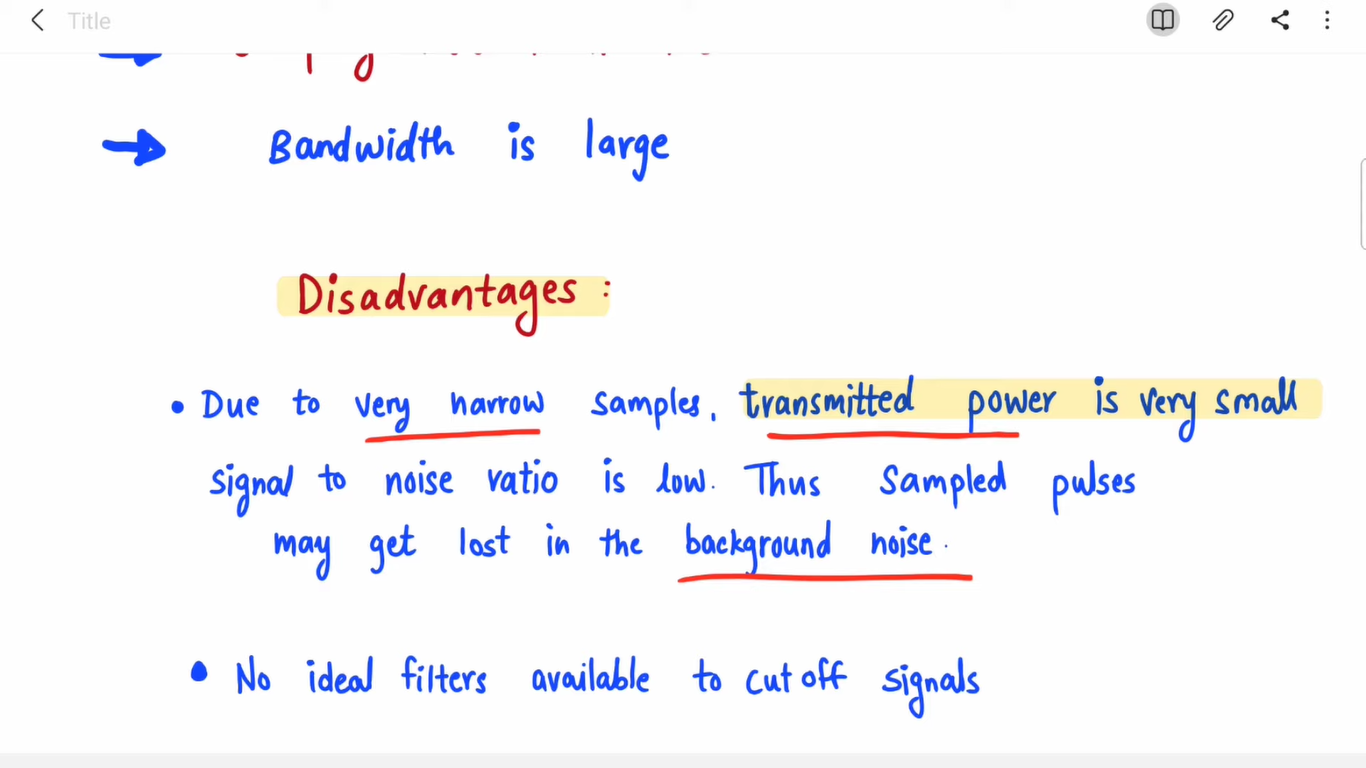 Title
Bandwidth is large
Disadvantages :
• Due to very narrow samples, transmitted power is very small
signal to noise ratio is low. Thus Sampled pulses
may get lost in the background noise.
• No ideal filters available to cut off signals